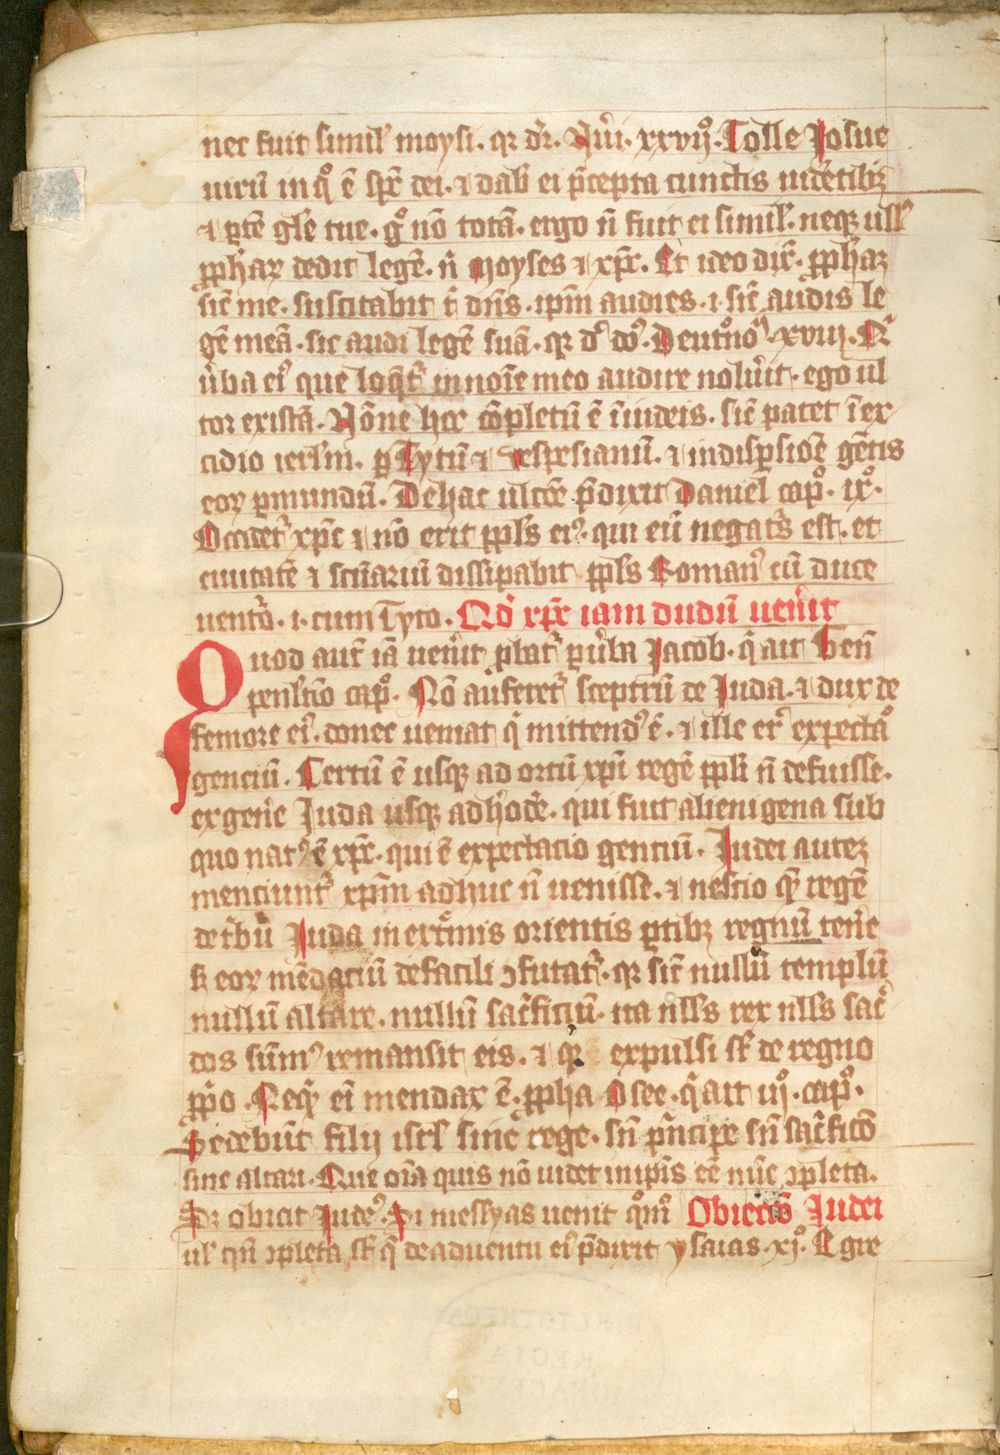 nec fuit simil' moysi. qr dr̄. Nu̾i. xxvij. Tolle Josue
uirū in qͦ ē spc̄ dei. ⁊ dab' ei p̄cepta cunctis uidētibꝫ
⁊ ꝑtē glē tue. gͦ nō totā. ergo n̄ fuit ei simil'. neqꝫ ull'
ꝓph̄aꝝ dedit legē. n̄ Moyses ⁊ xpc̄. Et ideo dic̄. ꝓph̄aꝫ
sic̄ me. suscitabit t̄ dn̄s. ip̄m audies. i. sic̄ audis le
gē meā. sic audi legē suā. qr dꝰ dͦ. Deut͛noͦ. xviij. Qͥ
u̾ba eiꝰ que loqͣt͛ in noīe meo audire nolu̾it. ego ul
tor existā. Nōne hoc cōpletū ē ī iudeis. sic̄ patet ī ex
cidio ierl̄m. ꝑ Tytū ⁊ Vespesianū. ⁊ in disꝑsiōē gētis
eoꝝ ꝑ mundū. De hac ulcōe p̄dixit Daniel capͦ. ixͦ.
Occidet͛ xpc̄ ⁊ nō erit ppl̄s eiꝰ. qui eū negatͣꝰ est. et
ciuitatē ⁊ sc̄uariū dissipabit ppl̄s Romanꝰ cū duce
uentͦ. i. cum Tyto. Qd̄ xpc̄ iam dudū uen̾it
Quod aut̄ iā uen̾it plat͛ ꝑ u̾ba Jacob. qͥ ait Gen̄
penl̄tīo capͦ. Nō auferet͛ sceptrū de Juda. ⁊ dux de
femore eiꝰ. donec ueniat qͥ mittendꝰ ē. ⁊ ille er̄ expectaͦ
genciū. Certū ē usqꝫ ad ortū xp̄i regē ppl̄i n̄ defuisse.
ex gen̾e Juda usqꝫ ad h̾odē. qui fuit alienigena sub
quo natꝰ ē xpc̄. qui ē expectacio genciū. Judei auteꝫ
menciunt͛ xp̄m adhuc n̄ uenisse. ⁊ nescio qꝫ regē
de tͥbu Juda in extͤmis orientis ꝑtibꝫ regnū ten̾e
s; eoꝝ mēdaciū de facili ↄfutat͛. qr sic̄ nullū templū
nullū altare. nullū sac̾ficiū. ita nll̄s rex nll̄s sac̾
dos sūmꝰ remansit eis. ⁊ qr expulsi st̄ de regno
ꝓpͥo. Neqꝫ ei̅ mendax ē. ꝓpha Osee. qͥ ait iijͦ. capͦ.
Sedebūt filij isrl̄ sine rege. sn̄ pͥncipe sn̄ sac̾ficō
sine altari. Que oīa quis nō uidet in ip̄is eē nūc ↄpleta.
Sꝫ obicit Judeꝰ. Si messyas uenit qͦmͦ Obiectō Judei
ul' qn̄ ↄpleta st̄ qͣ de aduentu eiꝰ p̄dixit ysaias. xjͦ. Egre